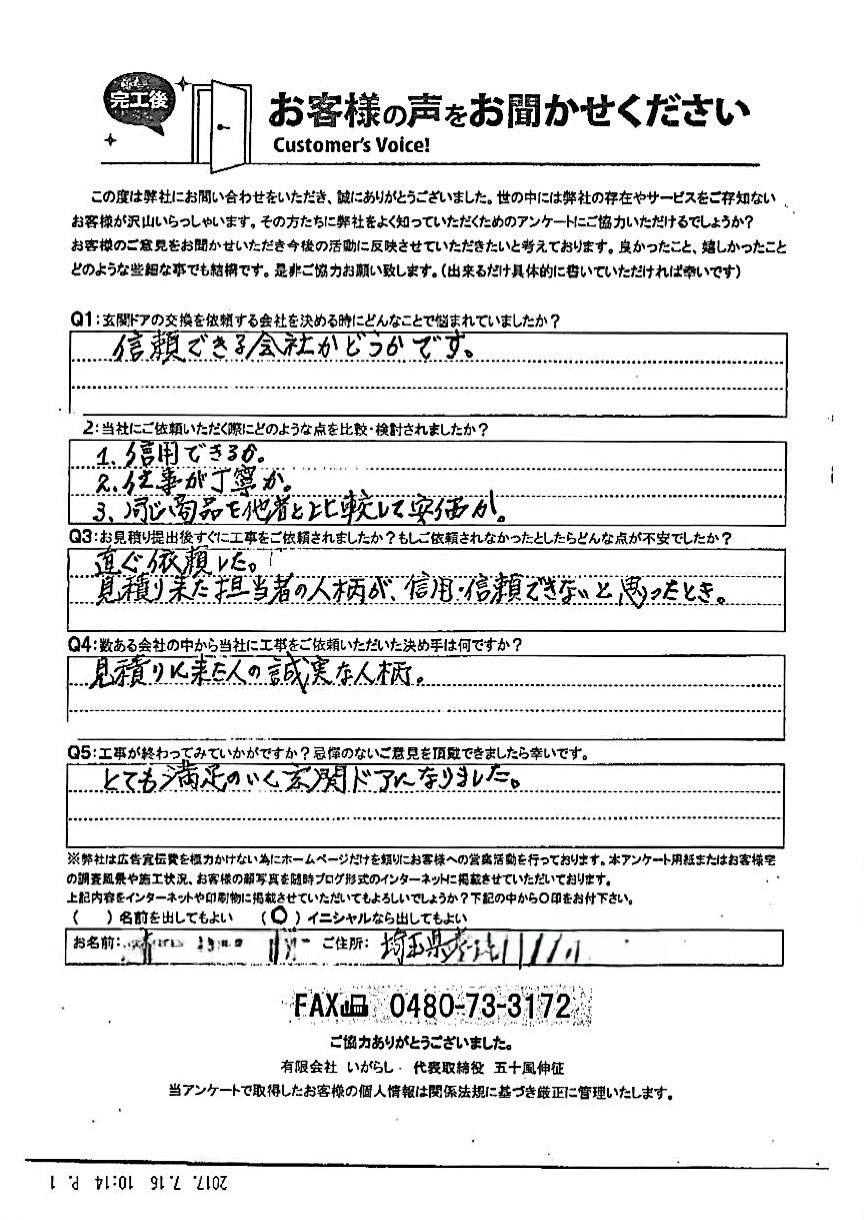 完工後
お客様の声をお聞かせください
Customer's Voice!
この度は弊社にお問い合わせをいただき、誠にありがとうございました。世の中には弊社の存在やサービスをご存知ない
お客様が沢山いらっしゃいます。その方たちに弊社をよく知っていただくためのアンケートにご協力いただけるでしょうか?
お客様のご意見をお聞かせいただき今後の活動に反映させていただきたいと考えております。良かったこと、嬉しかったこと
どのような些細な事でも結構です。是非ご協力お願い致します。(出来るだけ具体的に書いていただければ幸いです)
Q1:玄関ドアの交換を依頼する会社を決める時にどんなことで悩まれていましたか?
信頼できる会社かどうかです。
2:当社にご依頼いただく際にどのような点を比較・検討されましたか?
1.信用できるか。
2.仕事が丁寧か。
3、同じ商品を他者と比較して安価か。
Q3:お見積り提出後すぐに工事をご依頼されましたか?もしご依頼されなかったとしたらどんな点が不安でしたか?
直ぐ依頼した。
見積り来た担当者の人柄が、信用・信頼できないと思ったとき。
Q4:数ある会社の中から当社に工事をご依頼いただいた決め手は何ですか?
見積りに来た人の誠実な人柄。
Q5:工事が終わってみていかがですか?忌憚のないご意見を頂戴できましたら幸いです。
とても満足のいく玄関ドアになりました。
※弊社は広告宣伝費を極力かけない為にホームページだけを頼りにお客様への営業活動を行っております。本アンケート用紙またはお客様宅
の調査風景や施工状況、お客様の顔写真を随時ブログ形式のインターネットに掲載させていただいております。
上記内容をインターネットや印刷物に掲載させていただいてもよろしいでしょうか?下記の中から〇印をお付下さい。
( )名前を出してもよい (〇)イニシャルなら出してもよい
お名前: ご住所: 埼玉県
FAX 0480-73-3172
ご協力ありがとうございました。
有限会社 いがらし 代表取締役 五十嵐伸征
当アンケートで取得したお客様の個人情報は関係法規に基づき厳正に管理いたします。
2017. 7.16 10:14 P. 1